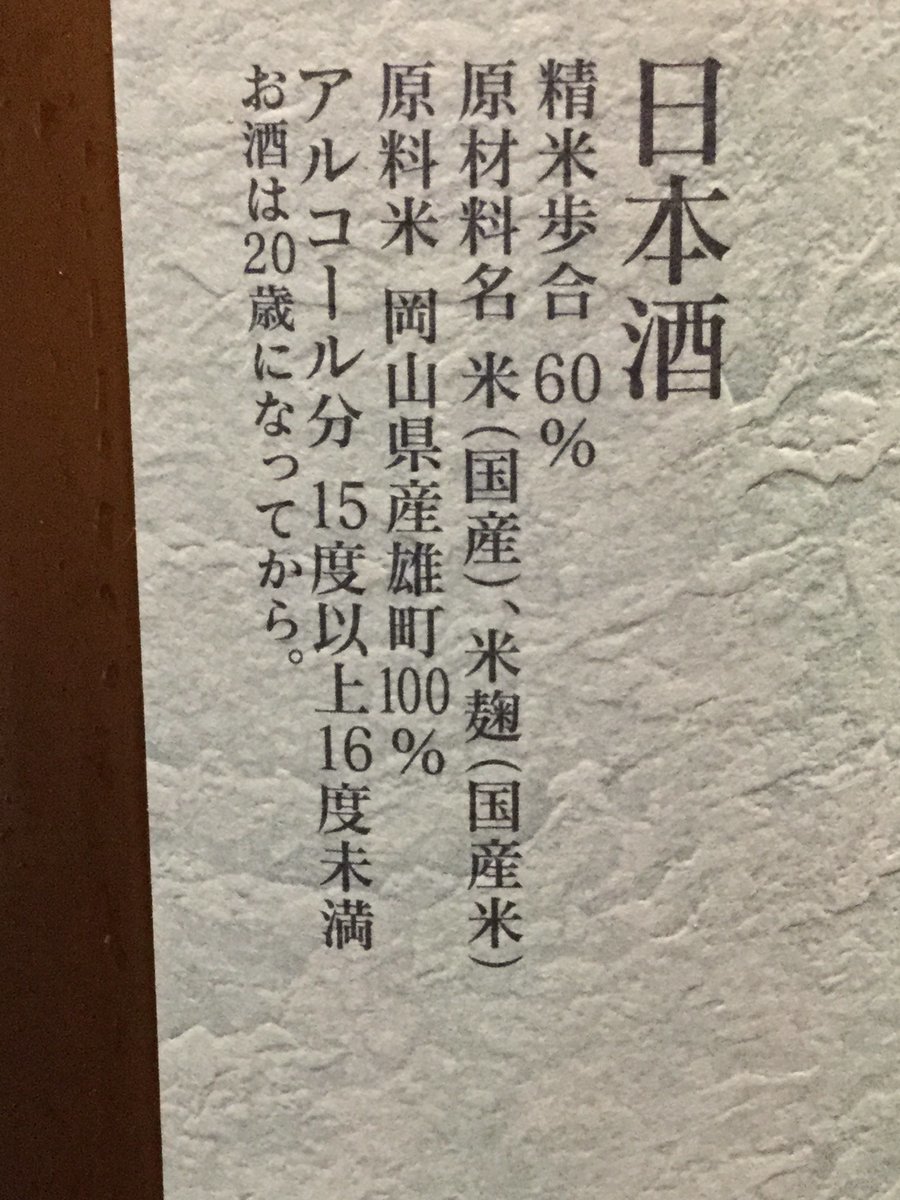 日本酒
精米歩合 60%
原材料名 米(国産)、米麹(国産米)
原料米 岡山県産雄町100%
アルコール分 15度以上16度未満
お酒は20歳になってから。